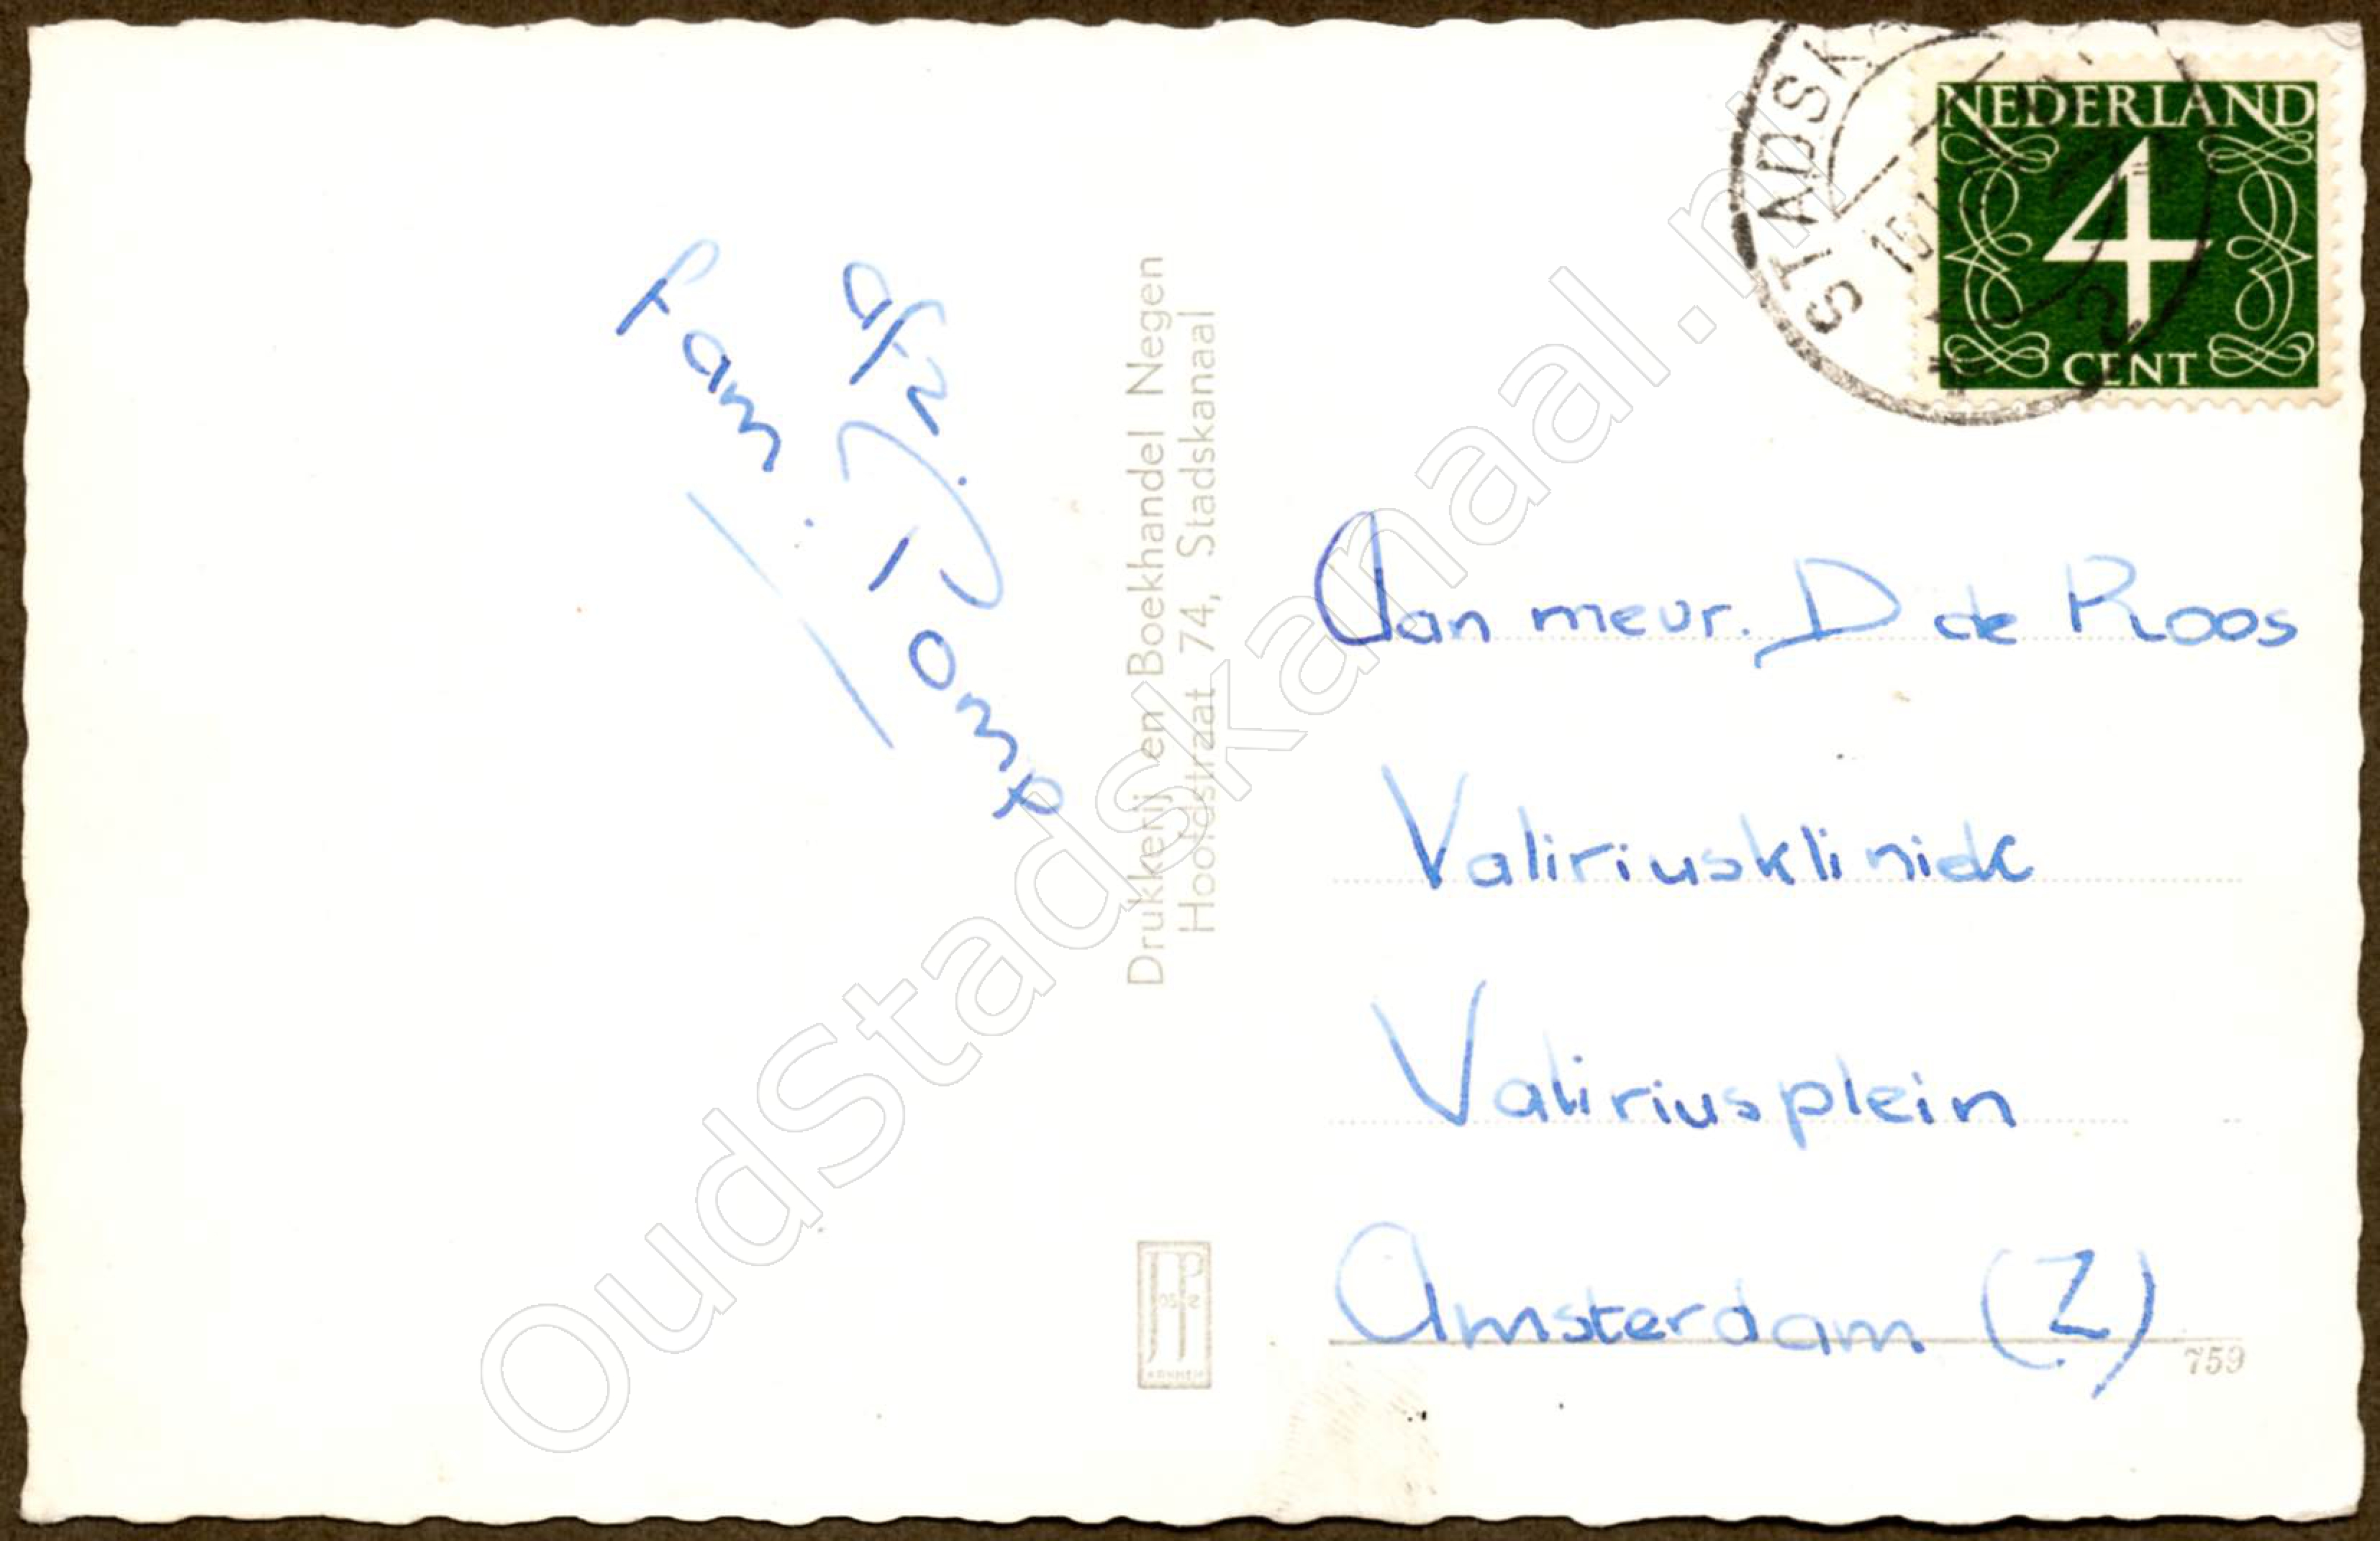 afz.
Fam. Pomp
Drukkerij en Boekhandel Negen
Hoofdstraat 74, Stadskanaal
NEDERLAND
4
CENT
Aan meur. D de Roos
Valiriuskliniek
Valiriusplein
Amsterdam (Z)
759
OudStadskanaal.nl